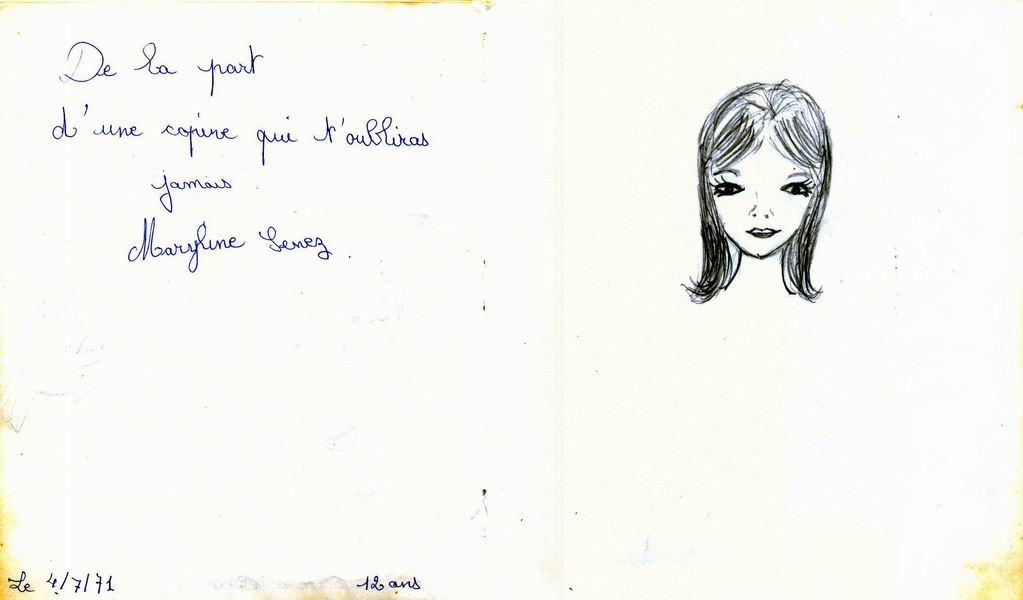 De la part
d'une copine qui t'oubliras
jamais
Maryline Lenez.
Le 4/7/71 12 ans